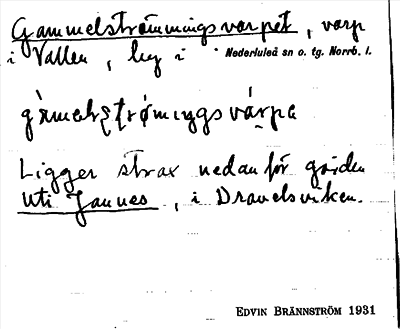 Gammelströmmingsvarpet, varp
i Vallen, by i Nederluleå sn o. tg. Norrb. l.
Ligger strax nedanför gården
uti Jannes, i Dravelsviken.
EDVIN BRÄNNSTRÖM 1931